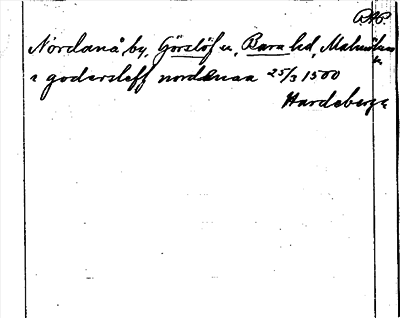 Nordanå by, Görslöf sn, Bara hd, Malmöhus
i godersleff nordenaa 25/3 1500
Hardeberga